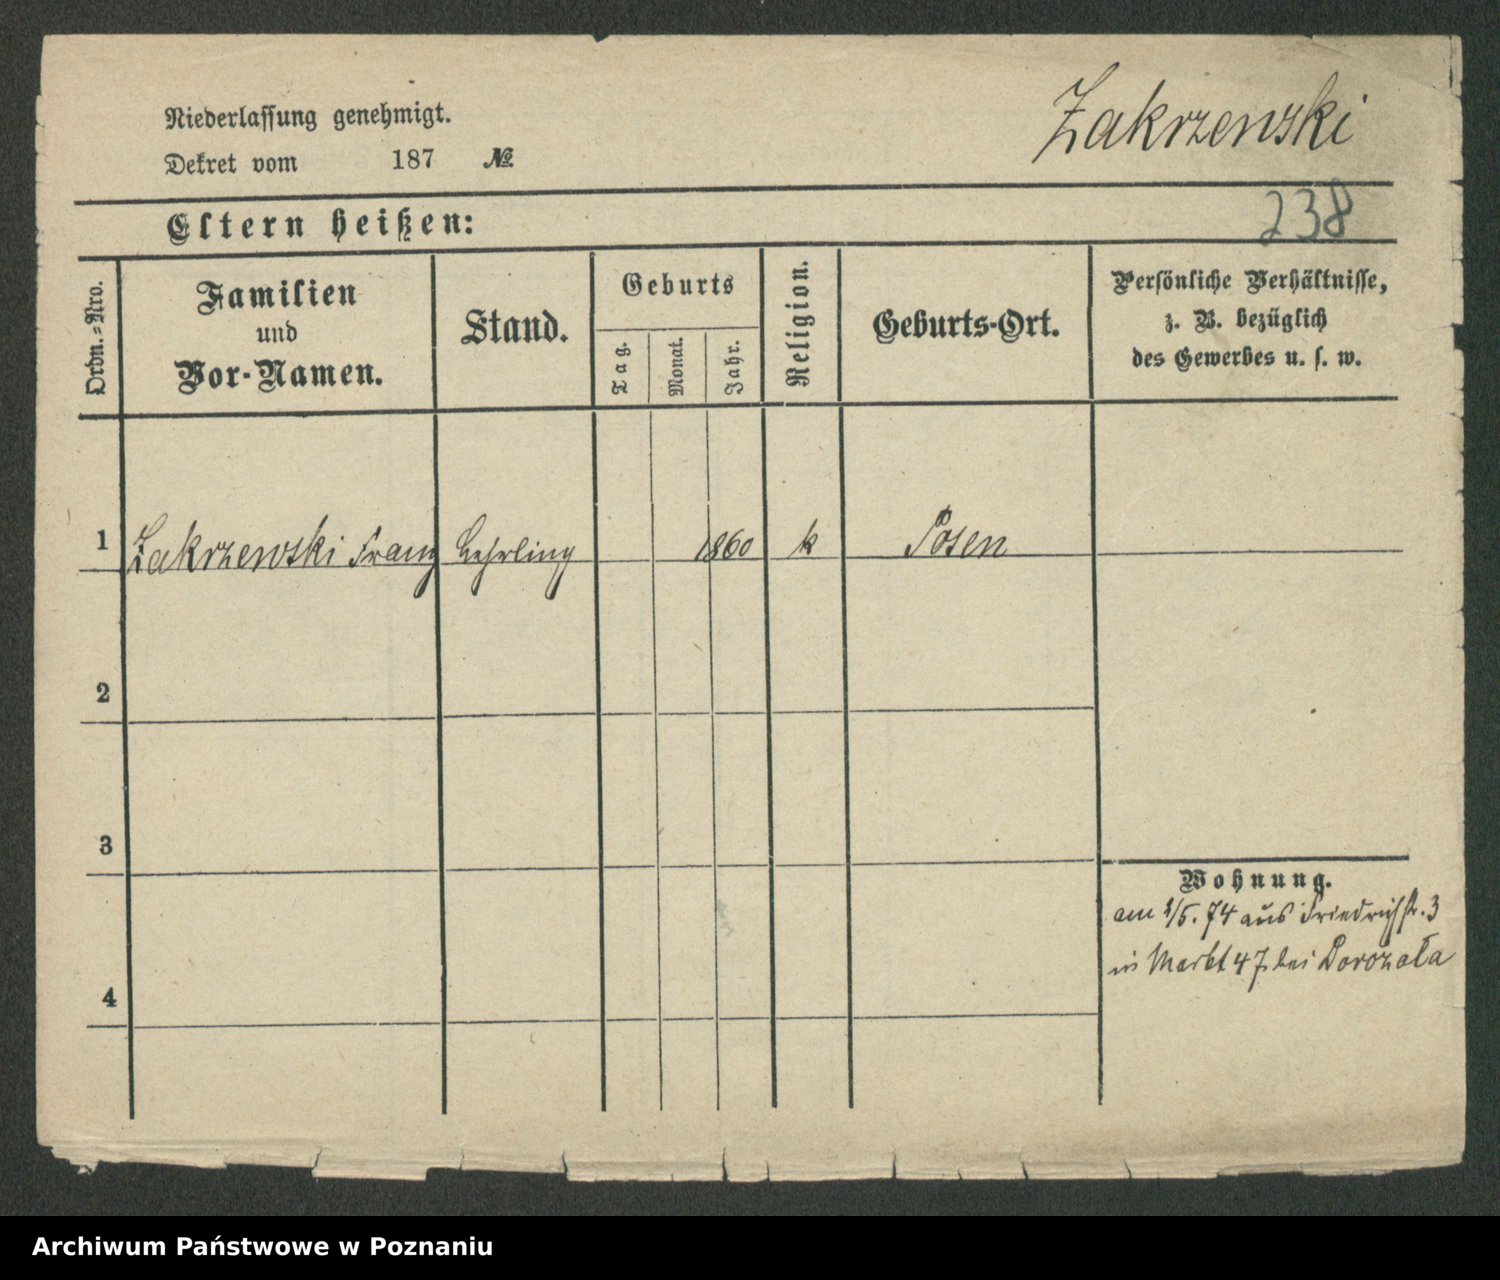 Niederlassung genehmigt.
Dekret vom 187 №
Zakrzewski
238
Eltern heißen:
Ordn.-Nro.
Familien
und
Vor-Namen.
Stand.
Geburts
Tag.
Monat.
Jahr.
Religion.
Geburts-Ort.
Persönliche Verhältnisse,
z. B. bezüglich
des Gewerbes u. s. w.
1 Zakrzewski Franz Lehrling 1860 k Posen
2
3
4
Wohnung.
am /5. 74 aus Friedrichstr. 3
in Markt 47 bei
Archiwum Państwowe w Poznaniu